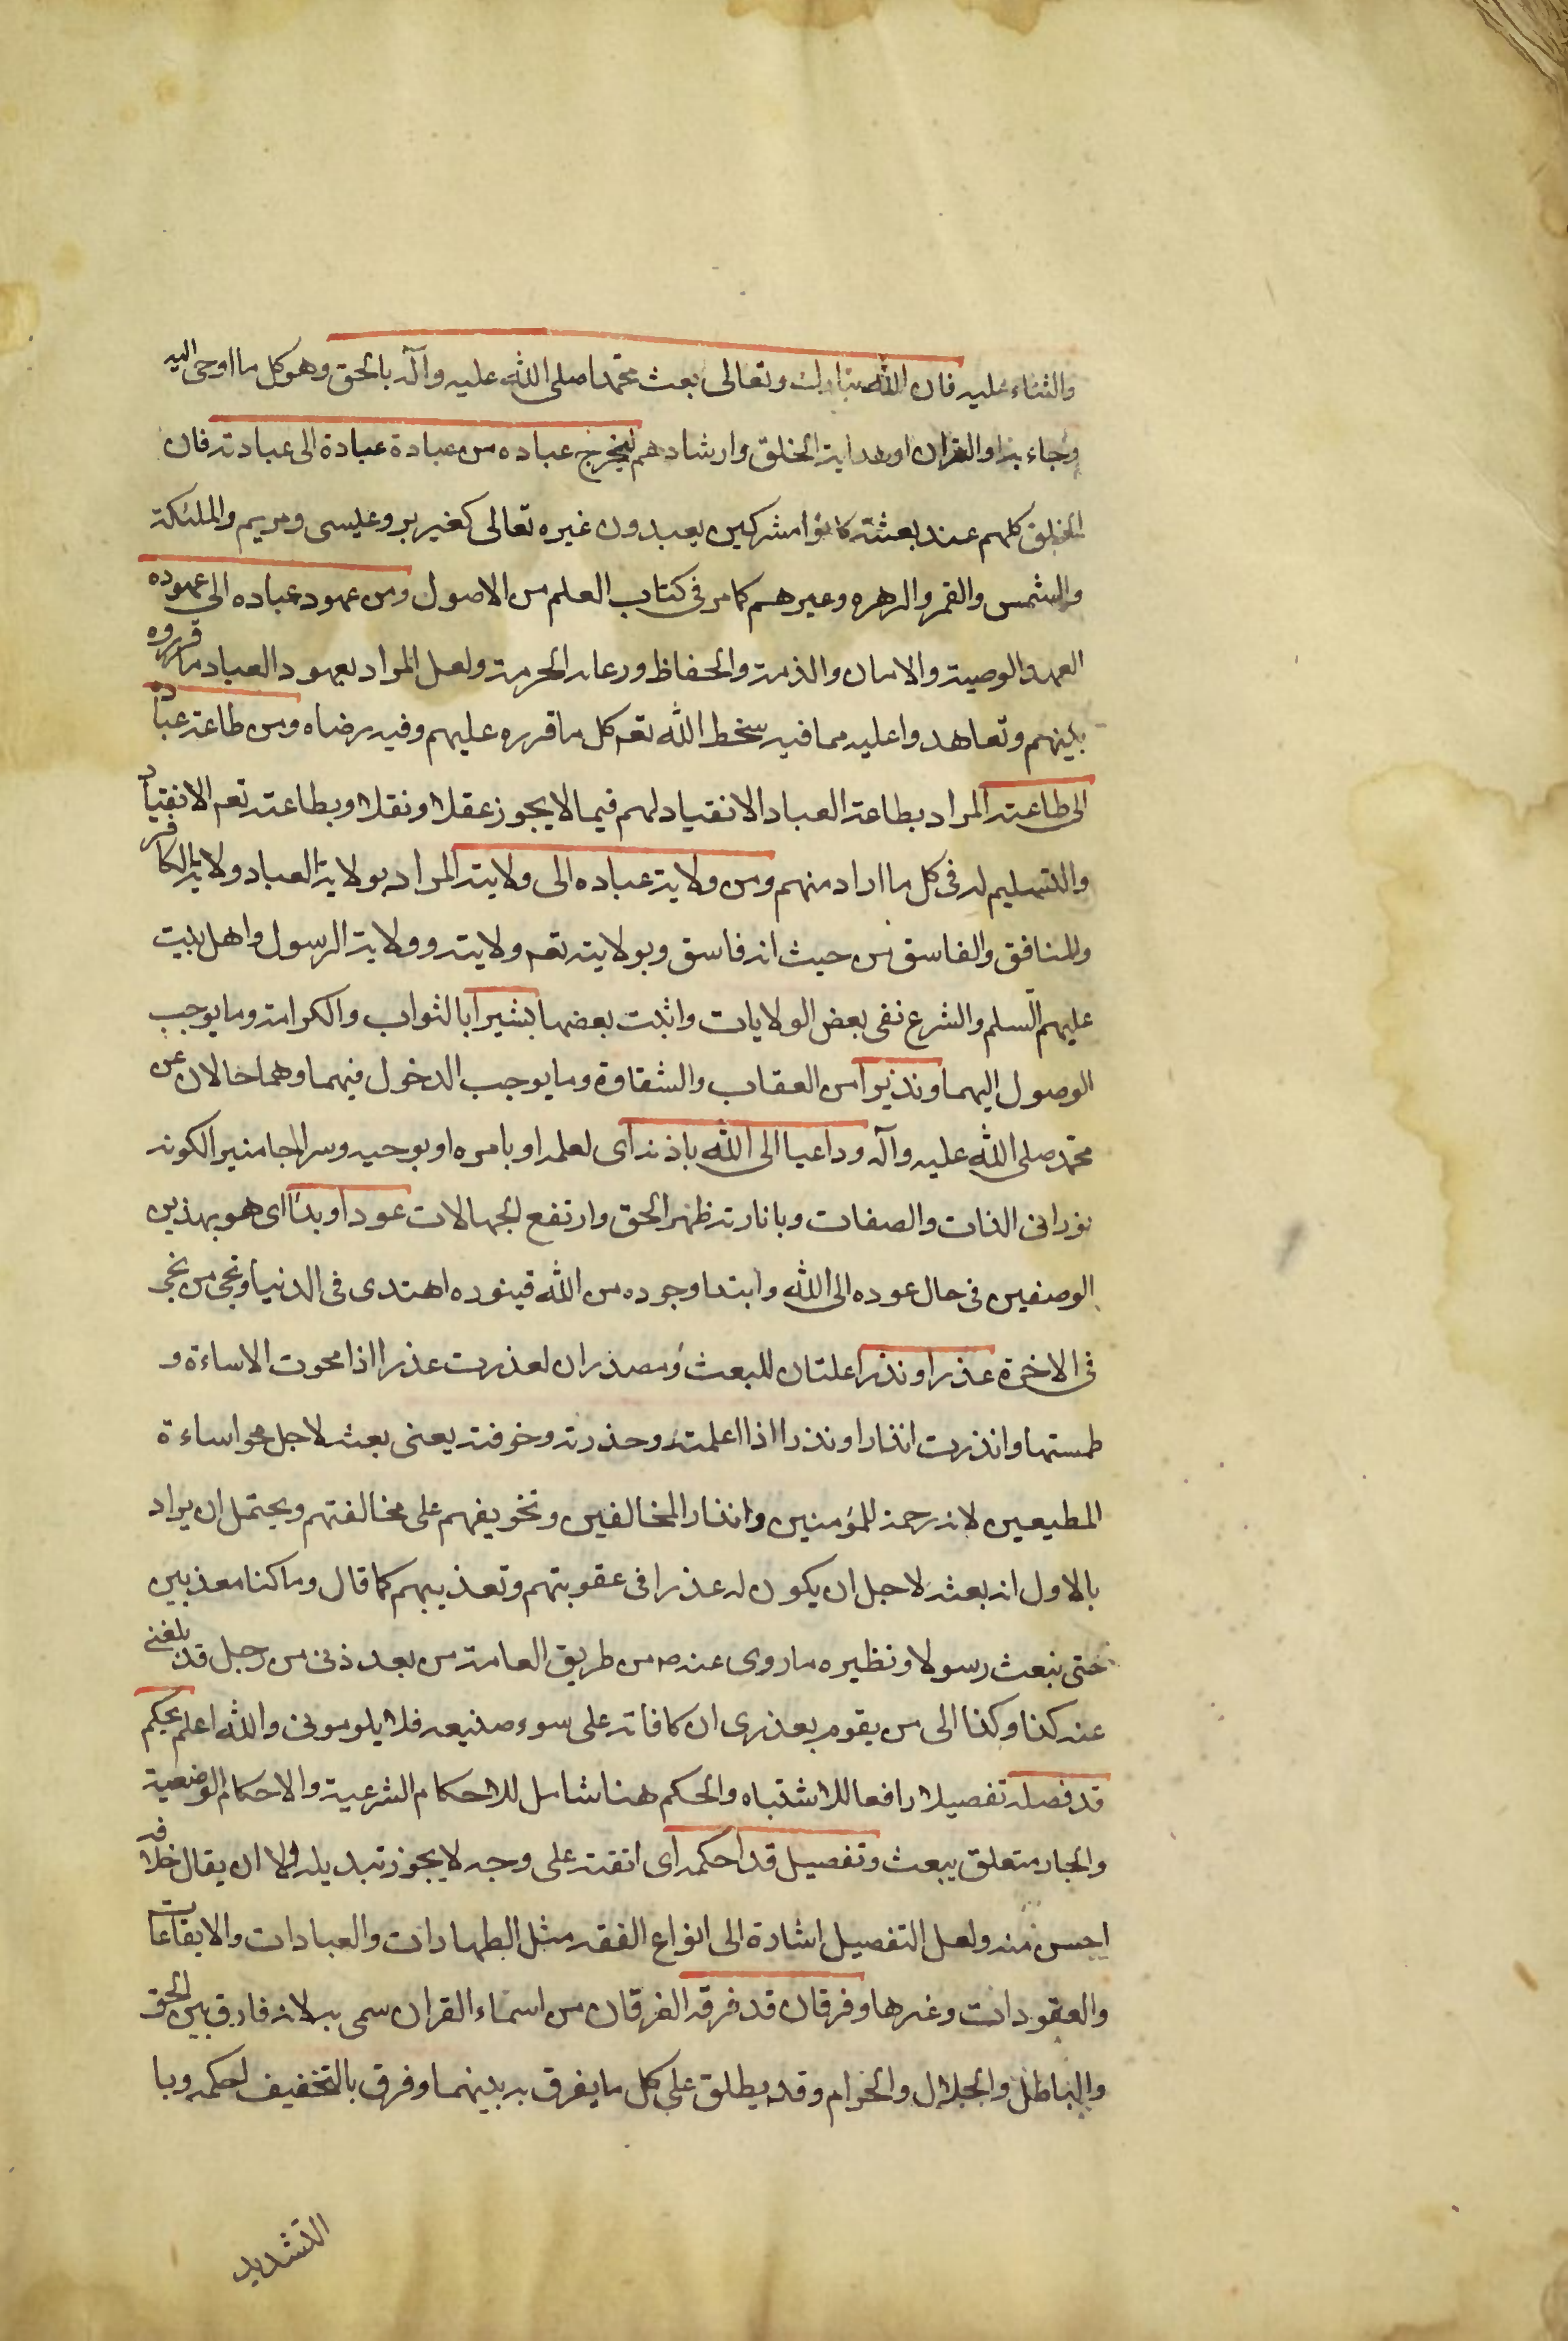 والثناء عليه فان الله تبارك وتعالى بعث محمدا صلى الله عليه وآله بالحق وهو كل ما اوحى اليه
وجاء به او القران او هداية الخلق وارشادهم ليخرج عباده من عبادة عبادة الى عبادته فان
الخلق كلهم عند بعثته كانوا مشركين يعبدون غيره تعالى كعزير وعيسى ومريم والملئكة
والشمس والقمر والزهره وغيرهم كما مر فى كتاب العلم من الاصول ومن عهود عباده الى عهوده
العهد والوصية والامان والذمة والحفاظ ورعاية الحرمة ولعل المراد بعهود العباد ما قرروه
بينهم وتعاهدوا عليه مما فيه سخط الله تعم كل ما قرره عليهم وفيه رضاه ومن طاعة عباده
الى طاعته المراد بطاعة العباد الانقياد لهم فيما لا يجوز عقلا ونقلا وبطاعته تعم الانقياد
والتسليم له فى كل ما اراد منهم ومن ولاية عباده الى ولايته المراد بولاية العباد ولاية الكافر
والمنافق والفاسق من حيث انه فاسق وبولايته تعم ولايته وولاية الرسول واهل بيت
عليهم السلم والشرع نفى بعض الولايات واثبت بعضها بشيرا بالثواب والكرامة وما يوجب
الوصول اليهما ونذيرا من العقاب والشقاوة وما يوجب الدخول فيهما وهما حالان عن
محمد صلى الله عليه وآله وداعيا الى الله باذنه اى لعلمه او بامره او بوحيه وسراجا منيرا لكونه
نورانى الذات والصفات وبانارته ظهر الحق وارتفع الجهالات عودا وبدئا اى هو بهذين
الوصفين فى حال عوده الى الله وابتدا وجوده من الله فبنوره اهتدى فى الدنيا ونجى من نجى
فى الاخرة عذرا ونذرا علتان للبعث ومصدران لعذرت عذرا اذا محوت الاساءة و
طمستها وانذرت انذارا ونذرا اذا اعلمته وحذرته وخوفته يعنى بعث لاجل محو اساءة
المطيعين لانه رحمة للمؤمنين وانذار المخالفين وتخويفهم على مخالفتهم ويحتمل ان يراد
بالاول انه بعثه لاجل ان يكون له عذرا فى عقوبتهم وتعذيبهم كما قال وما كنا معذبين
حتى نبعث رسولا ونظيره ما روى عنه ص من طريق العامة من يعذرنى من رجل قد بلغنى
عنه كذا وكذا الى من يقوم بعذرى ان كافاته على سوء صنيعه فلا يلومونى والله اعلم بحكم
قد فصله تفصيلا رافعا للاشتباه والحكم هنا شامل للاحكام الشرعية والاحكام الوضعية
والجار متعلق ببعث وتفصيل قد احكمه اى اتقنه على وجه لا يجوز تبديله ولا ان يقال خلافه
احسن منه ولعل التفصيل اشارة الى انواع الفقه مثل الطهارات والعبادات والايقاعات
والعقودات وغيرها وفرقان قد فرقه الفرقان من اسماء القران سمى به لانه فارق بين الحق
والباطل والحلال والحرام وقد يطلق على كل ما يفرق به بينهما وفرق بالتخفيف احكمه وبا
التشديد